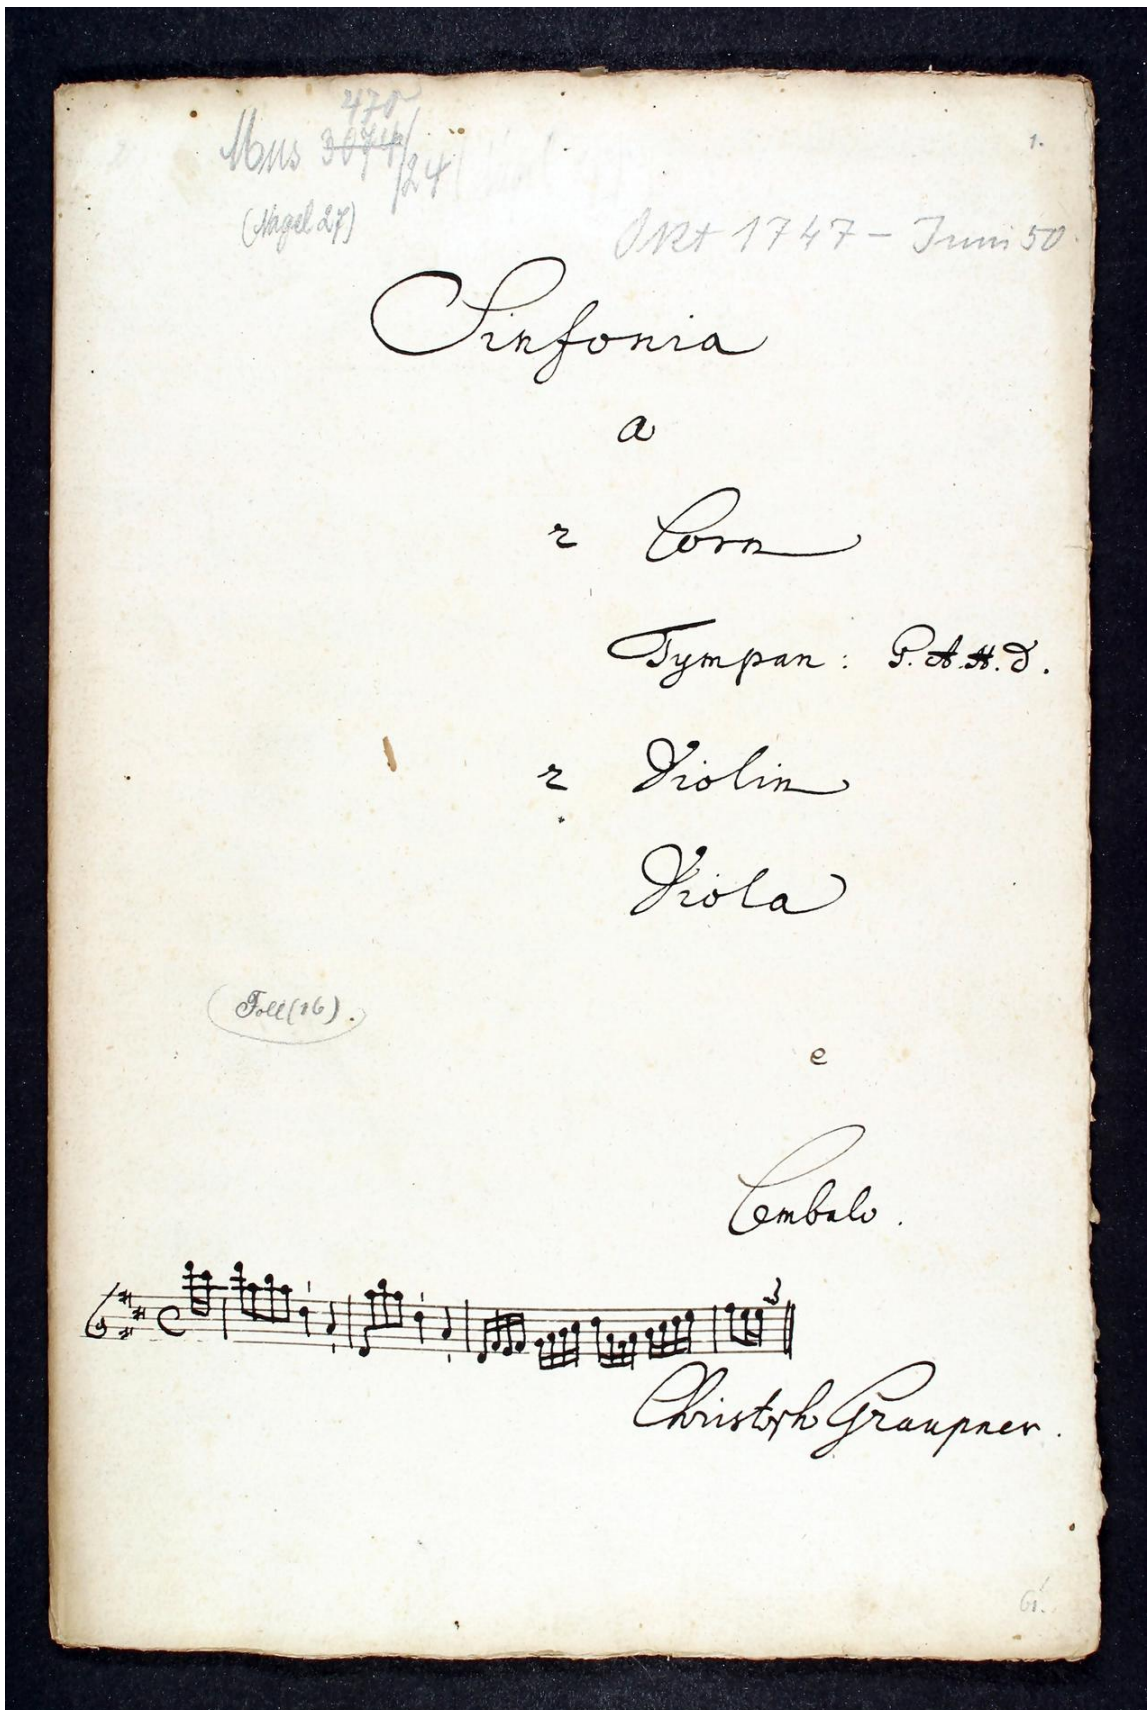 470
Mus 3074/24
1.
(Nagel 27)
Okt 1747 – Juni 50.
Sinfonia
a
2 Corn
Tympan: G. A. H. D.
2 Violin
Viola
(16).
e
Cembalo.
Christoph Graupner.